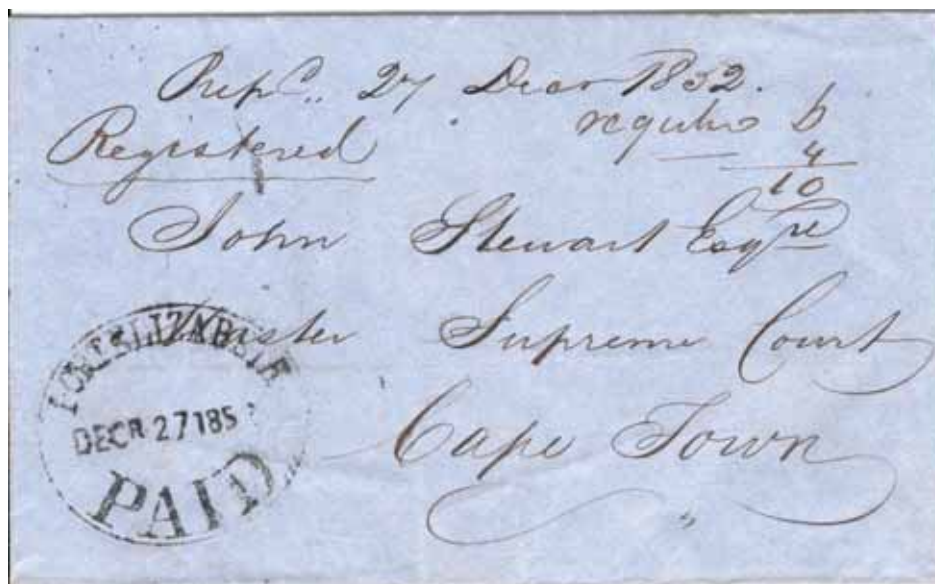 27 Decr 1852.
Registered
6
4
10
John Stewart Esqre
Master Supreme Court
Cape Town
PORT ELIZABETH
DECR 27 185
PAID